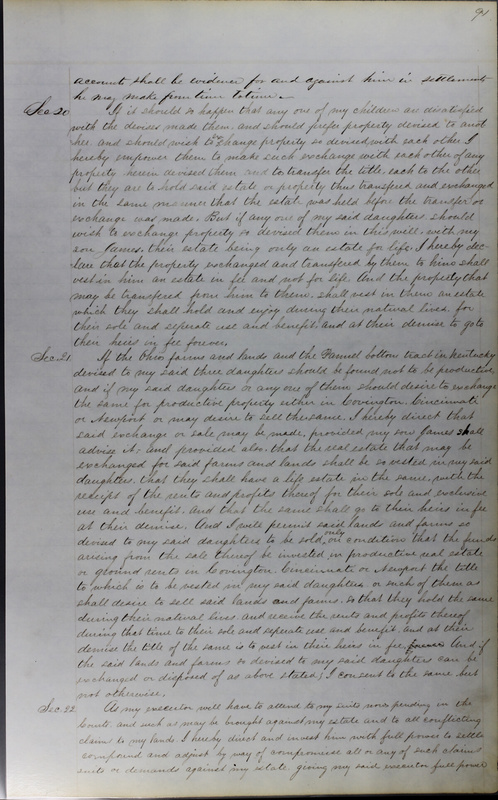 91
account shall be evidence for and against him in settlements
he may make from time to time.
Sec. 20 If it should so happen that any one of my children are disatisfied
with the devises made them, and should prefer property devised to anot
her, and should wish to exchange property so devised, with each other I
hereby empower them to make such exchange with each other of any
property herein devised them and to transfer the title each to the other
but they are to hold said estate or property thus transfered and exchanged
in the same manner that the estate was held before the transfer or
exchange was made. But if any one of my said daughters should
wish to exchange property so devised them in this will with my
son James, their estate being only an estate for life. I hereby dec-
lare that the property exchanged and transfered by them to him shall
vest in him an estate in fee and not for life. And the property that
may be transfered from him to them, shall vest in them an estate
which they shall hold and enjoy during their natural lives, for
their sole and seperate use and benefit and at their demise to go to
their heirs in fee forever.
Sec. 21 If the Ohio farms and lands and the bottom tract in Kentucky
devised to my said three daughters should be found not to be productive,
and if my said daughters or any one of them should desire to exchange
the same for productive property either in Covington, Cincinnati
or Newport or may desire to sell the same. I hereby direct that
said exchange or sale may be made, provided my son James shall
advise it. And provided also, that the real estate that may be
exchanged for said farms and lands shall be so vested in my said
daughters, that they shall have a life estate in the same, with the
receipt of the rents and profits thereof for their sole and exclusive
use and benefit. And that the same shall go to their heirs in fee
at their demise. And I will permit said lands and farms so
devised to my said daughters to be sold only on condition that the funds
arising from the sale thereof be invested in productive real estate
or ground rents in Covington, Cincinnati or Newport the title
to which is to be vested in my said daughters or such of them as
shall desire to sell said lands and farms, so that they hold the same
during their natural lives and receive the rents and profits thereof
during that time to their sole and seperate use and benefit, and at their
demise the title of the same is to vest in their heirs in fee forever And if
the said lands and farms so devised to my said daughters can be
exchanged or disposed of as above stated, I consent to the same but
not otherwise.
Sec. 22 As my executor will have to attend to my suits now pending in the
Courts and such as may be brought against my estate and to all conflicting
claims to my lands. I hereby direct and invest him with full power to settle
compound and adjust by way of compromise all or any of such claims
suits or demands against my estate, giving my said executor full power